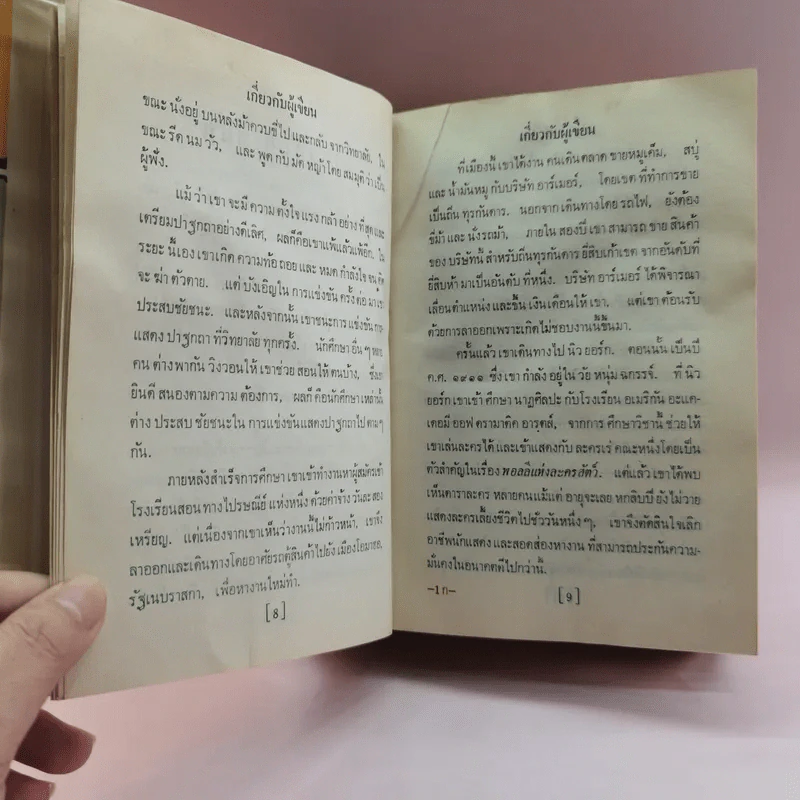 เกี่ยวกับผู้เขียน
ขณะ นั่งอยู่ บนหลังม้าควบขี่ไป และกลับ จากวิทยาลัย, ใน
ขณะ รีด นม วัว, และ พูด กับ มัด หญ้าโดย สมมุติ ว่า เป็น
ผู้ฟัง.
แม้ ว่า เขา จะ มี ความ ตั้งใจ แรง กล้า อย่าง ที่สุด และ
เตรียมปาฐกถาอย่างดีเลิศ, ผลก็คือเขาแพ้แล้วแพ้อีก. ใน
ระยะ นี้เอง เขาเกิด ความท้อ ถอย และ หมด กำลังใจ จน คิด
จะ ฆ่า ตัวตาย. แต่ บังเอิญใน การแข่งขัน ครั้ง ต่อ มา เขา
ประสบชัยชนะ. และหลังจากนั้น เขาชนะการ แข่งขัน การ
แสดง ปาฐกถา ที่วิทยาลัย ทุกครั้ง. นักศึกษา อื่น ๆ หลาย
คน ต่างพากัน วิงวอนให้ เขาช่วย สอนให้ ตนบ้าง, ซึ่งเขา
ยินดี สนองตามความ ต้องการ, ผลก็ คือนักศึกษา เหล่านั้น
ต่าง ประสบ ชัยชนะใน การแข่งขันแสดงปาฐกถาไป ตามๆ
กัน.
ภายหลังสำเร็จการศึกษา เขาเข้าทำงานหาผู้สมัครเข้า
โรงเรียนสอน ทางไปรษณีย์ แห่งหนึ่ง ด้วยค่าจ้าง วันละ สอง
เหรียญ. แต่เนื่องจากเขาเห็นว่างานนี้ไม่ก้าวหน้า, เขาจึง
ลาออกและเดินทางโดยอาศัยรถตู้สินค้าไปยัง เมืองโอมาฮอ,
รัฐเนบราสกา, เพื่อหางานใหม่ทำ.
[8]
เกี่ยวกับผู้เขียน
ที่เมืองนี้ เขาได้งาน คนเดินตลาด ขายหมูเค็ม, สบู่
และ น้ำมันหมู กับบริษัท อาร์เมอร์, โดยเขต ที่ทำการขาย
เป็นถิ่น ทุรกันดาร. นอกจาก เดินทางโดย รถไฟ, ยังต้อง
ขี่ม้า และ นั่งรถม้า, ภายใน สองปี เขา สามารถ ขาย สินค้า
ของ บริษัทนี้ สำหรับถิ่นทุรกันดาร ยี่สิบเก้าเขต จากอันดับที่
ยี่สิบห้า มาเป็นอันดับ ที่หนึ่ง. บริษัท อาร์เมอร์ ได้พิจารณา
เลื่อนตำแหน่ง และขึ้น เงินเดือนให้ เขา, แต่เขา ต้อนรับ
ด้วยการลาออกเพราะเกิดไม่ชอบงานนี้ขึ้นมา.
ครั้นแล้ว เขาเดินทางไป นิว ยอร์ก. ตอนนั้น เป็นปี
ค.ศ. ๑๙๑๑ ซึ่ง เขา กำลัง อยู่ใน วัย หนุ่ม ฉกรรจ์. ที่ นิว
ยอร์ก เขาเข้า ศึกษา นาฏศิลปะ กับโรงเรียน อเมริกัน อะแค-
เดอมี ออฟ ดรามาติค อารตส์, จากการ ศึกษาวิชานี้ ช่วยให้
เขาเล่นละครได้ และเข้าแสดงกับ ละครเร่ คณะหนึ่งโดยเป็น
ตัวสำคัญในเรื่อง พอลลีแห่งละครสัตว์. แต่แล้ว เขาได้พบ
เห็นดาราละคร หลายคน แม้แต่ อายุจะเลย หกสิบปี ยังไม่วาย
แสดงละครเลี้ยงชีวิตไปชั่ววันหนึ่ง ๆ, เขาจึงตัดสินใจเลิก
อาชีพนักแสดง และสอดส่องหางาน ที่สามารถประกันความ-
มั่นคงในอนาคตดีไปกว่านี้.
—1 ก—
[9]